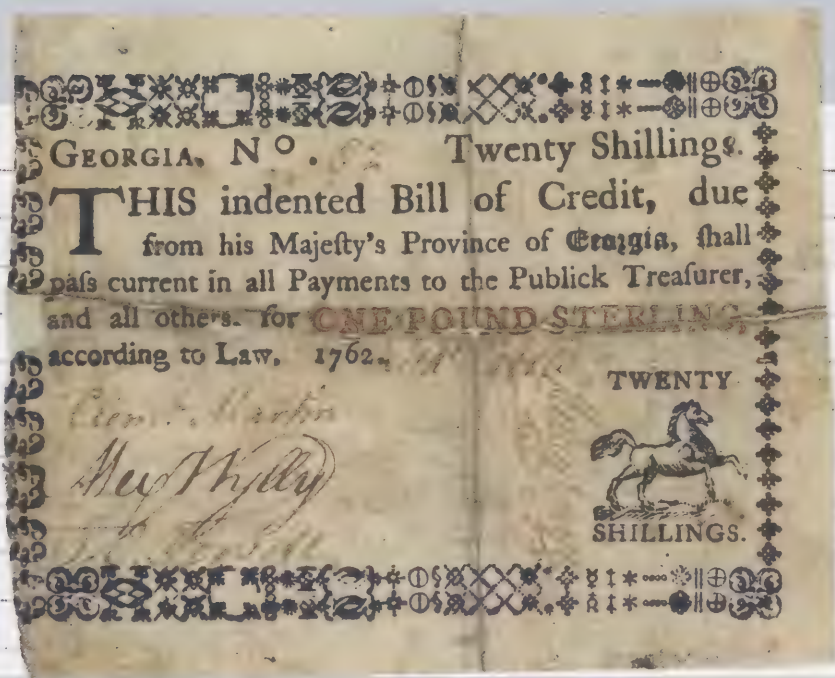 GEORGIA. Nº. Twenty Shillings.
THIS indented Bill of Credit, due
from his Majeſty's Province of Georgia, ſhall
paſs current in all Payments to the Publick Treaſurer,
and all others. for ONE POUND STERLING,
according to Law. 1762.
TWENTY
Clemt. Martin
Alex Wylly
SHILLINGS.